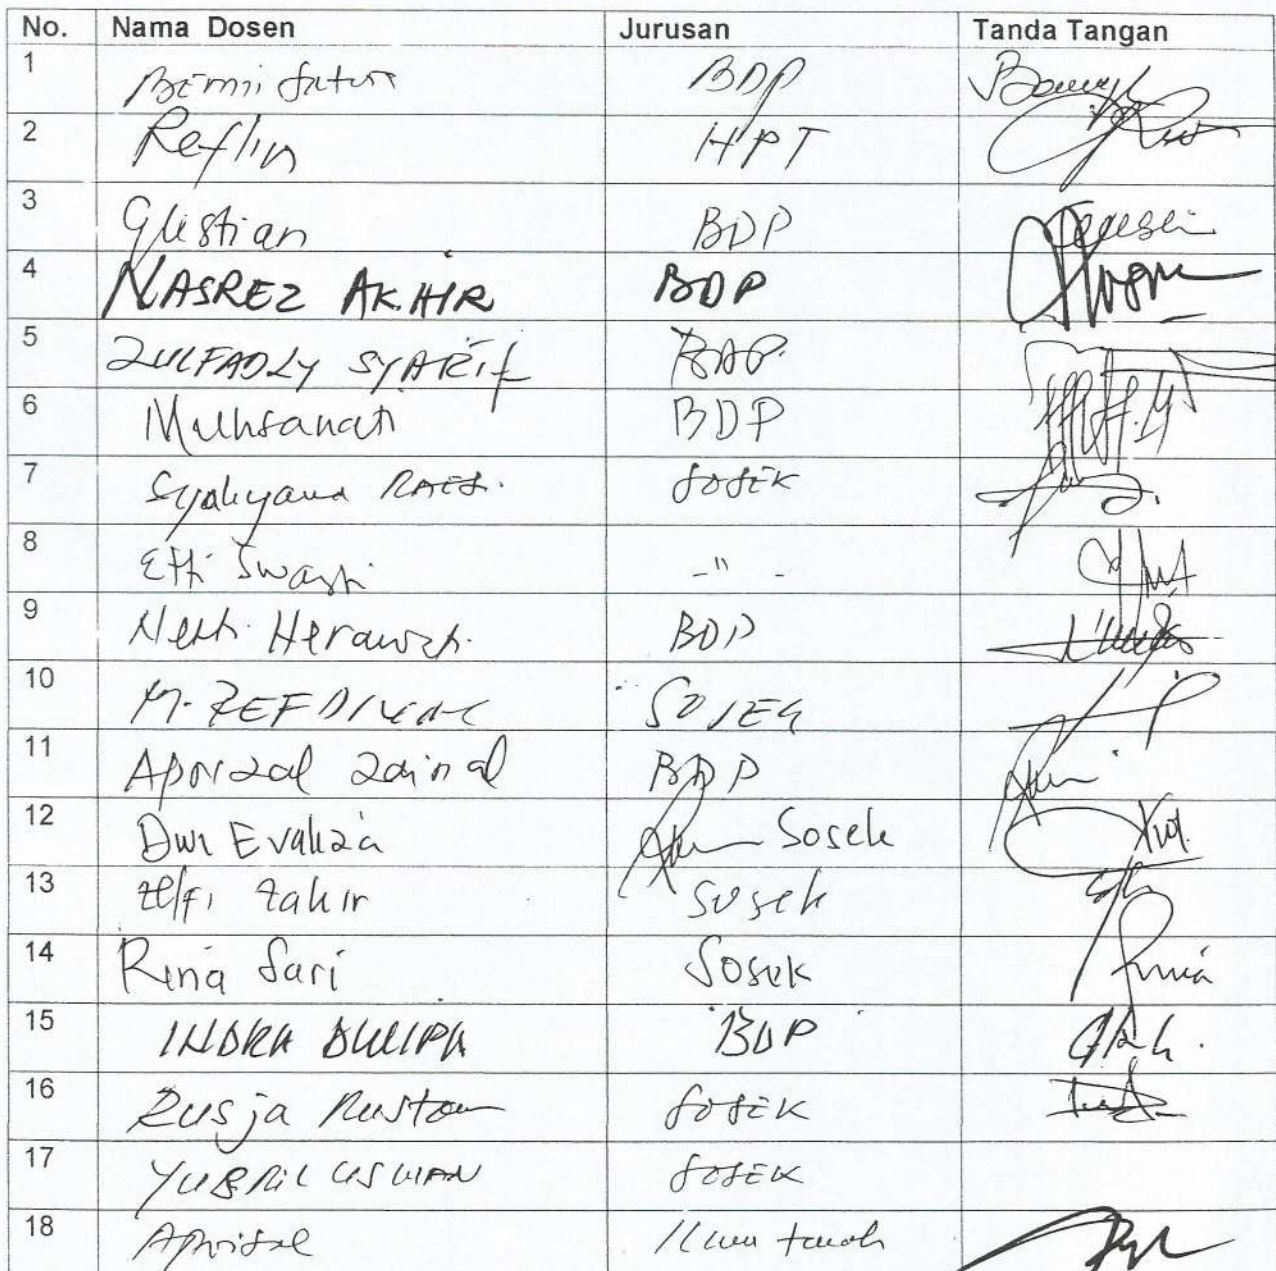 No. Nama Dosen Jurusan Tanda Tangan
1 BDP
2 Reflin HPT
3 Gustian BDP
4 NASREZ AKHIR BDP
5 ZULFADLY SYARIF BDP
6 Muhsanati BDP
7 Syahyana RAES. SOSEK
8 Effi Swasti -"-
9 Netti Herawati BDP
10 M. REFDINAL SOSEK
11 Aprizal Zainal BDP
12 Dwi Evaliza Sosek
13 Zelfi Zakir Sosek
14 Rina Sari Sosek
15 INDRA DWIPA BDP
16 Rusja Rustam SOSEK
17 YUSRIL USMAN SOSEK
18 Aprisal Ilmu tanah